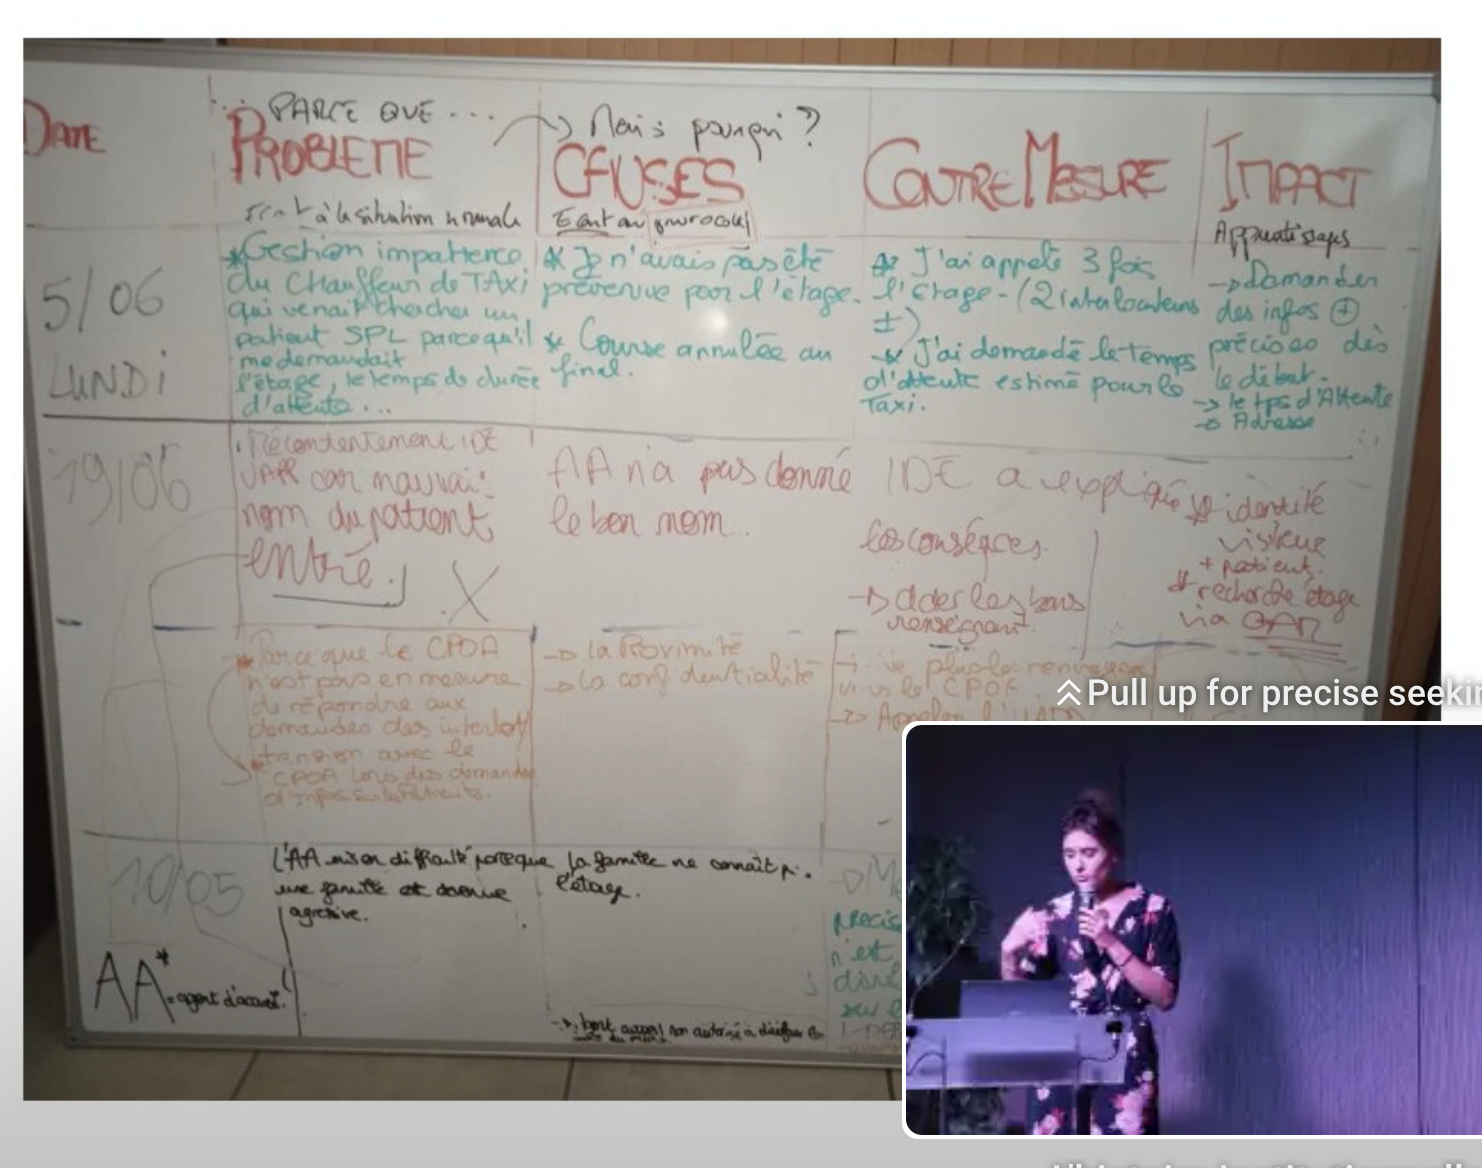 DATE
... PARCE QUE ...
PROBLEME
Ecart à la situation normale
→ Mais pourquoi ?
CAUSES
Ecart au protocole
CONTRE MESURE
IMPACT
Apprentissages
5/06
LUNDi
* Gestion impatience
du Chauffeur de TAXi
qui venait chercher un
patient SPL parce qu'il
me demandait
l'étage, le temps de durée
d'attente ...
* Je n'avais pas été
prévenue pour l'étage.
* Course annulée au
final.
* J'ai appelé 3 fois
l'étage - (2 interlocuteurs
±)
* J'ai demandé le temps
d'attente estimé pour le
Taxi.
→ Demander
des infos ⊕
précises dès
le début.
→ le tps d'Attente
→ Adresse
19/06
Mécontentement IDE
car mauvais
nom du patient
entré.
X
AA n'a pas donné
le bon nom.
IDE a expliqué
les conséqces.
→ les bons
* identité
visiteur
+ patient.
* recherche étage
via
* Parce que le CPOA
n'est pas en mesure
de répondre aux
demandes des interloc
* tension avec le
CPOA lors des demandes
d'Infos sur les Patients.
→ la Proximité
→ la confidentialité
plus les renvoyer
vers le
→ Appeler
10/05
L'AA mis en difficulté parce que
une famille est devenue
agressive.
la famille ne connaît p.
l'étage.
AA* = agent d'accueil.
non autorisé à
précis
n'est
sur l
Pull up for precise seekin